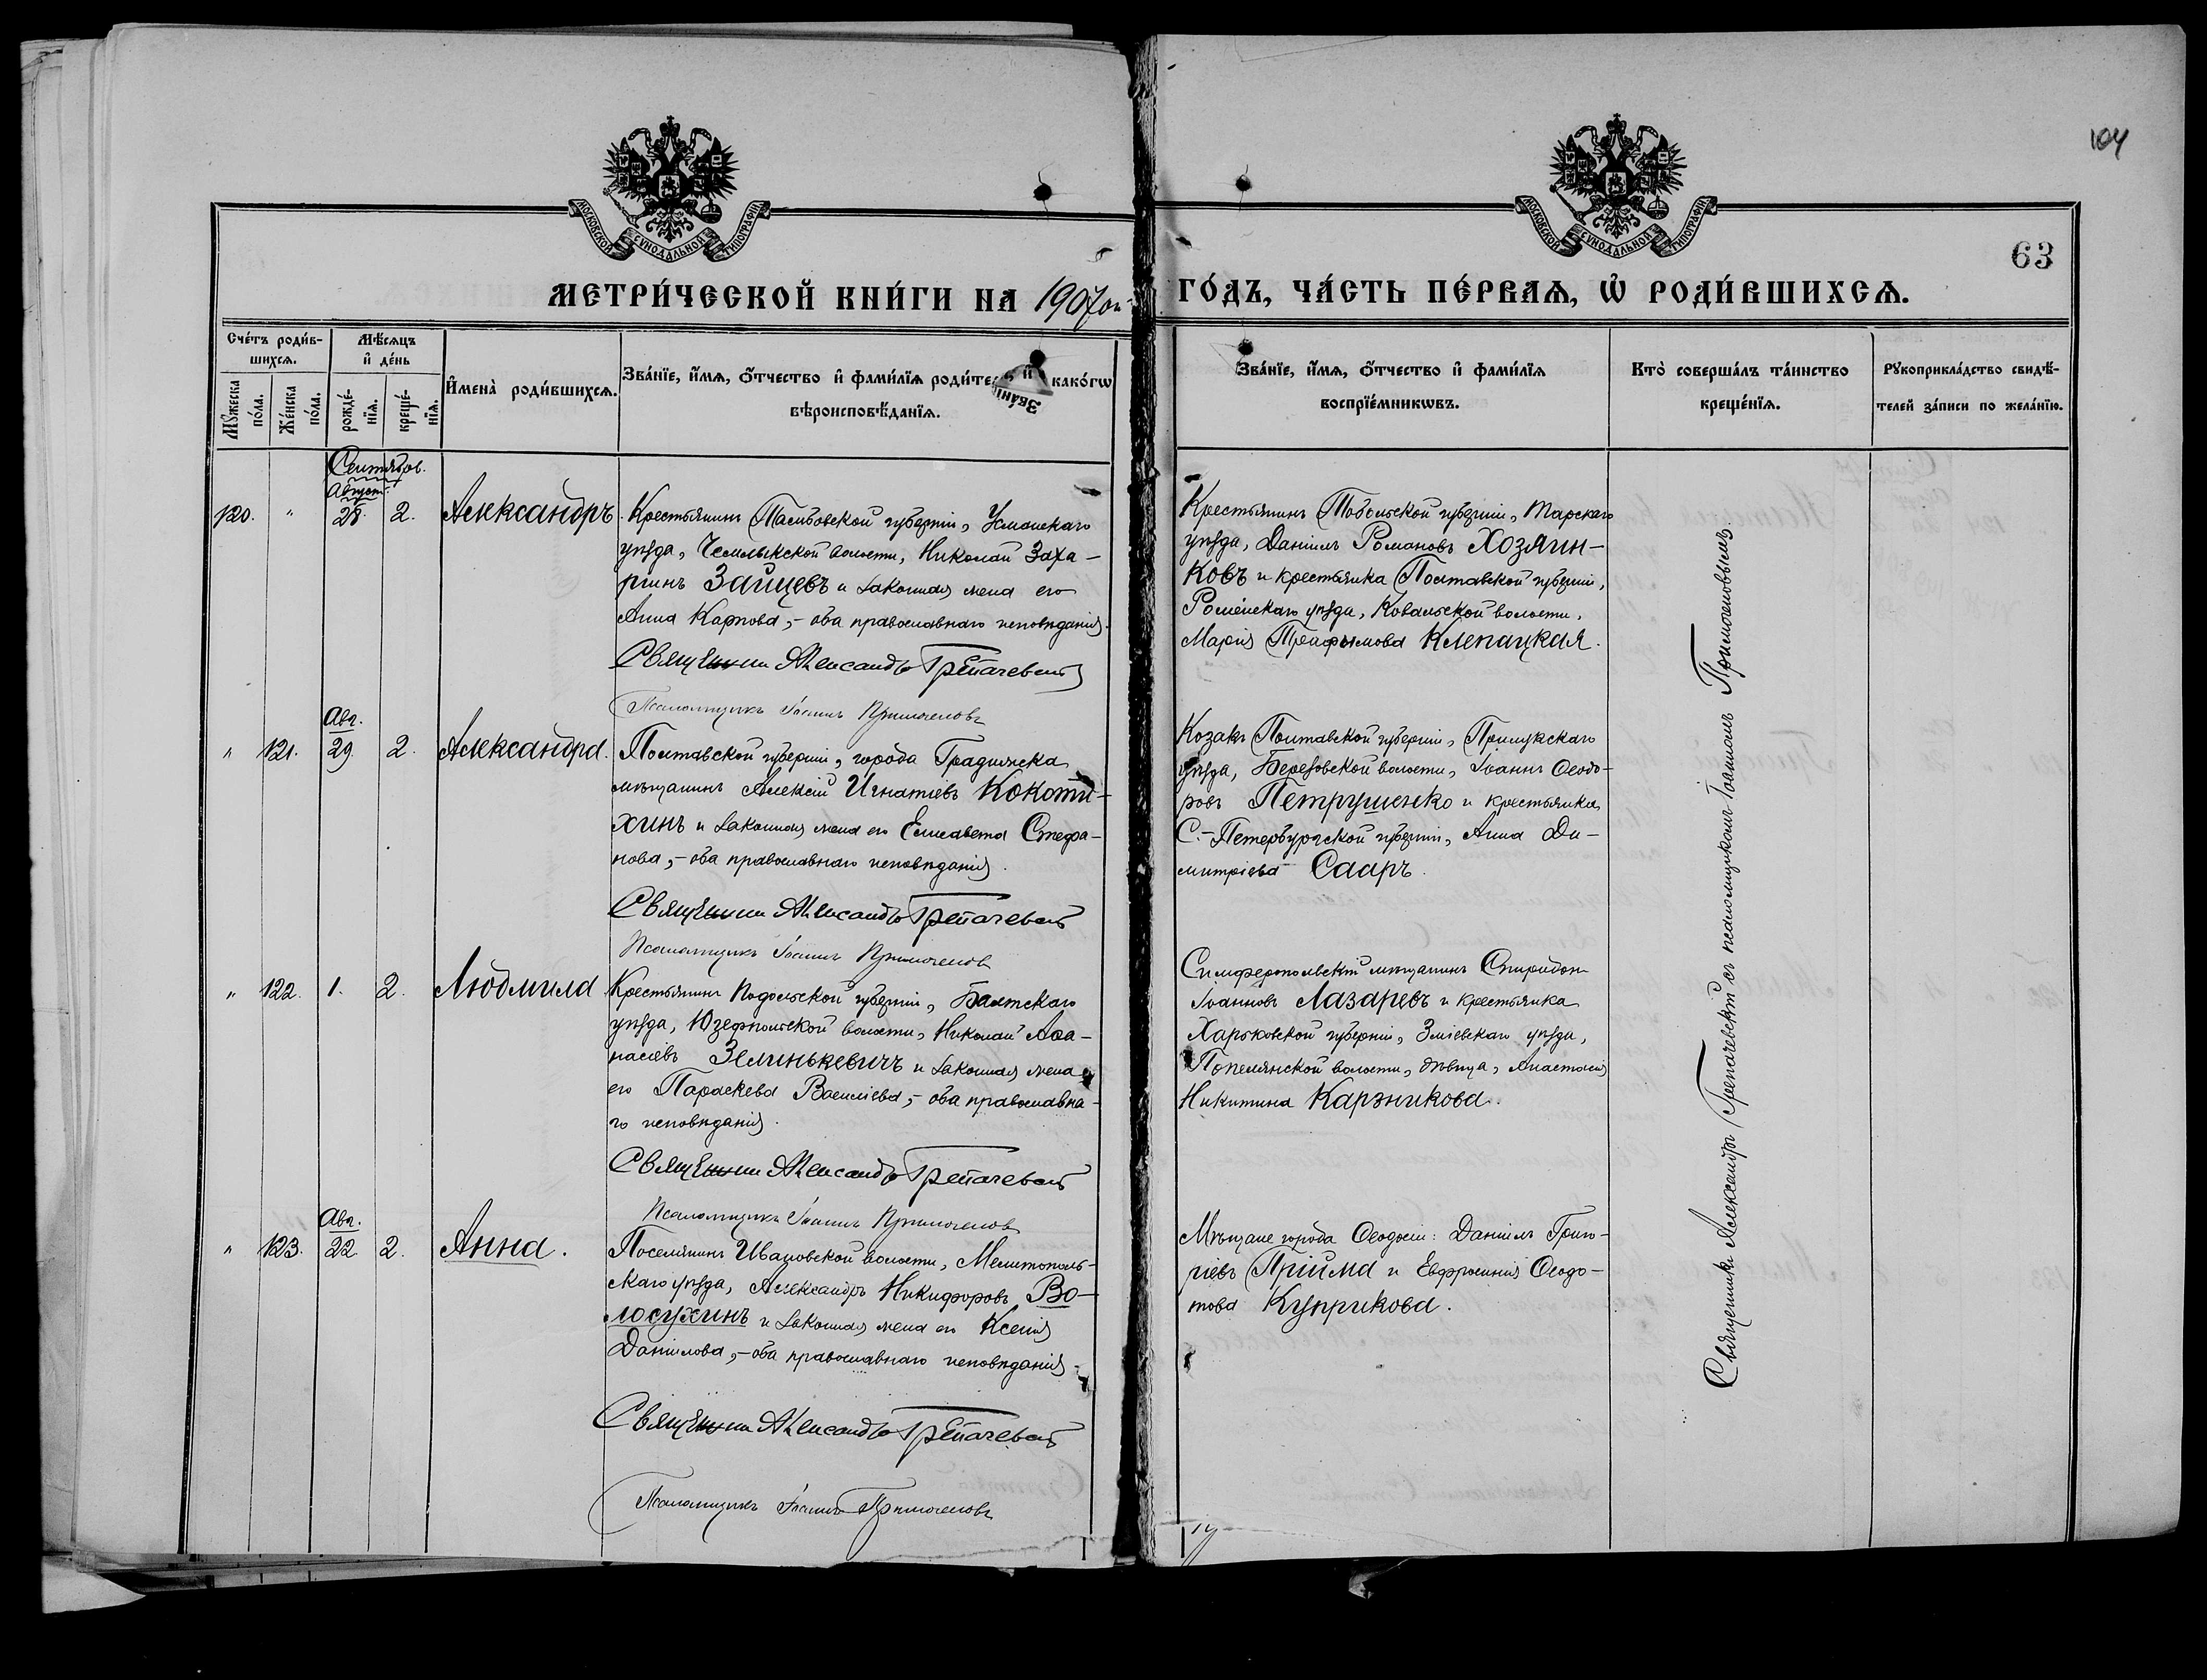 104
МОСКОВСКОЙ СѴНОДАЛЬНОЙ ТИПОГРАФІИ
МОСКОВСКОЙ СѴНОДАЛЬНОЙ ТИПОГРАФІИ
63
МЕТРИ́ЧЕСКОЙ КНИ́ГИ НА 1907ой
ГО́ДЪ, ЧА́СТЬ ПЕ́РВАѦ, Ѡ҆ РОДИ́ВШИХСѦ.
Сче́тъ роди́в-
шихсѧ.
Мꙋ́жеска по́ла.
Же́нска по́ла.
Мѣ́сѧцъ
и҆ де́нь
рожде́-
нїѧ.
креще́-
нїѧ.
И҆мена̀ роди́вшихсѧ.
Зва́нїе, и҆́мѧ, ѻ҆́тчество и҆ фами́лїѧ роди́те и҆ како́гѡ
вѣроисповѣ́данїѧ.
Зва́нїе, и҆́мѧ, ѻ҆́тчество и҆ фами́лїѧ
воспрїе́мникѡвъ.
Кто̀ соверша́лъ та́инство
креще́нїѧ.
Рꙋкоприкла́дство свидѣ́-
телей за́писи по жела́нїю.
Сентябрь.
Август.
120. " 28. 2. Александръ.
Крестьянинъ Тамбовской губерніи, Усманскаго
уѣзда, Чемлыкской волости, Николай Заха-
ріинъ Зайцевъ и законная жена его
Анна Карпова,- оба православнаго исповѣданія.
Священник Александръ Трепачевскій
Псаломщикъ Іоаннъ Примоченовъ
Крестьянинъ Тобольской губерніи, Тарскаго
уѣзда, Даніилъ Романовъ Хозяин-
ковъ и крестьянка Полтавской губерніи,
Роменскаго уѣзда, Ковальской волости,
Марія Трифонова Клепацкая.
Авг.
" 121. 29. 2. Александра.
Полтавской губерніи, города Градижска
мѣщанинъ Алексій Игнатіевъ Кокоти-
хинъ и законная жена его Елисавета Стефа-
нова,- оба православнаго исповѣданія.
Священник Александръ Трепачевскій
Псаломщикъ Іоаннъ Примоченовъ
Козакъ Полтавской губерніи, Прилукскаго
уѣзда, Березовской волости, Іоаннъ Ѳеодо-
ровъ Петрушенко и крестьянка
С.-Петербургской губерніи, Анна Ди-
митріева Сааръ.
" 122. 1. 2. Людмила
Крестьянинъ Подольской губерніи, Балтскаго
уѣзда, Юзефпольской волости, Николай Аѳа-
насіевъ Зелинькевичъ и законная жена
его Параскева Василіева,- оба православна-
го исповѣданія.
Священник Александръ Трепачевскій
Псаломщикъ Іоаннъ Примоченовъ
Симферопольскій мѣщанинъ Спиридонъ
Іоанновъ Лазаревъ и крестьянка
Харьковской губерніи, Зміевскаго уѣзда,
Попелянской волости, дѣвица, Анастасія
Никитина Карэникова.
Авг.
" 123. 22. 2. Анна.
Поселянинъ Ивановской волости, Мелитополь-
скаго уѣзда, Александръ Никифоровъ Во-
лосухинъ и законная жена его Ксенія
Даніилова,- оба православнаго исповѣданія.
Священник Александръ Трепачевскій
Псаломщикъ Іоаннъ Примоченовъ
Мѣщане города Ѳеодосіи: Даніилъ Григо-
ріевъ Прійма и Евфросинія Ѳеодо-
това Куприкова.
Священникъ Александръ Трепачевскій съ псаломщикомъ Іоанномъ Примоченовымъ.